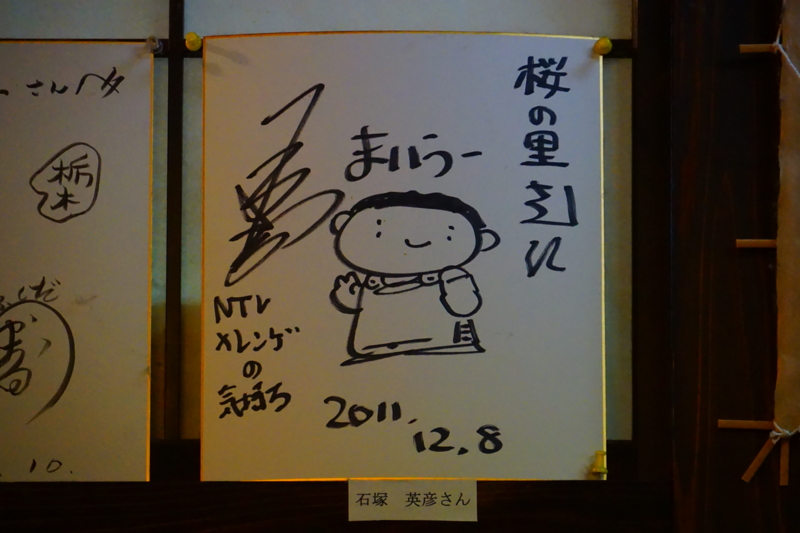 さんへ
栃木
桜の里さん江
まいうー
NTV
メレンゲ
の
気持ち
2011.
12.8
.10.
石塚 英彦さん